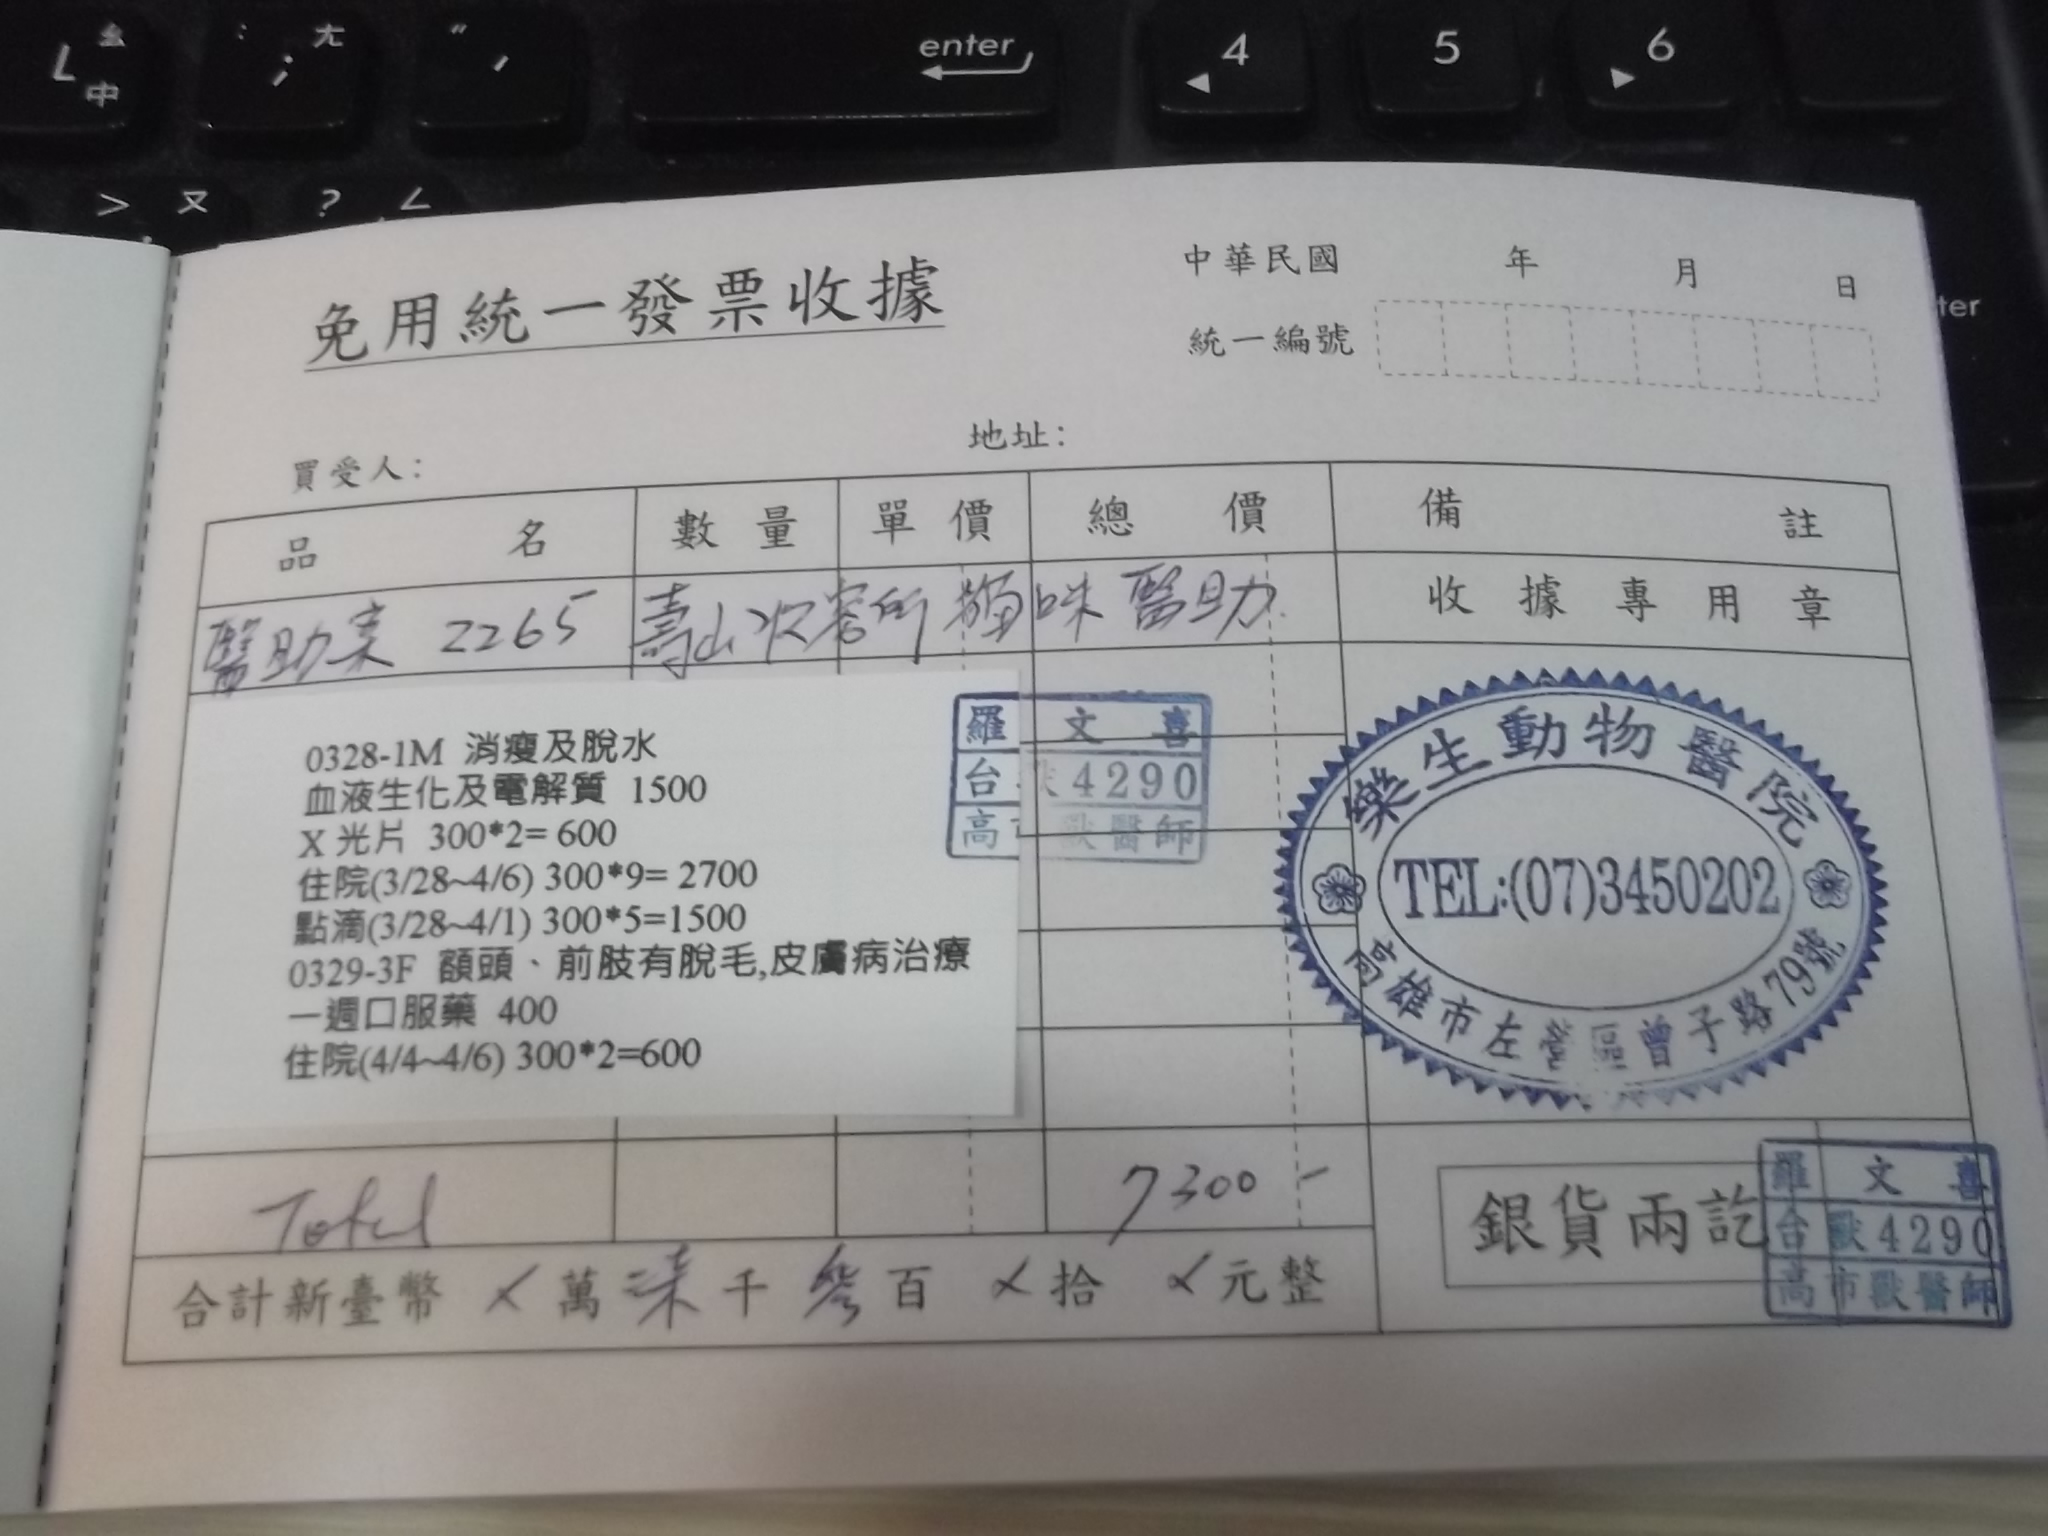 L ㄠ 中
: ; ㄤ
" ,
enter
4
5
6
> ㄡ
? ㄥ
免用統一發票收據
中華民國 年 月 日
統一編號
買受人：
地址：
品名 數量 單價 總價 備註
醫助案 2265 壽山收容所 貓咪醫助
收據專用章
0328-1M 消瘦及脫水
血液生化及電解質 1500
X 光片 300*2= 600
住院(3/28~4/6) 300*9= 2700
點滴(3/28~4/1) 300*5=1500
0329-3F 額頭、前肢有脫毛,皮膚病治療
一週口服藥 400
住院(4/4~4/6) 300*2=600
羅文喜
台獸4290
高市獸醫師
樂生動物醫院
TEL:(07)3450202
高雄市左營區曾子路79號
Total 7300 -
合計新臺幣 ㄨ萬柒千參百ㄨ拾ㄨ元整
銀貨兩訖
羅文喜
台獸4290
高市獸醫師